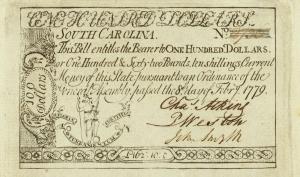 ONE HUNDRED DOLLARS.
SOUTH CAROLINA. No.
This Bill entitles the Bearer to ONE HUNDRED DOLLARS.
or One Hundred & Sixty-two Pounds, ten shillings Current
Money of this State, pursuant to an Ordinance of the
Assembly, passed the 8 day of Feb.y 1779.
100 dollars
Cha.s Atkins
P Weston
John Smyth
£162.10.s